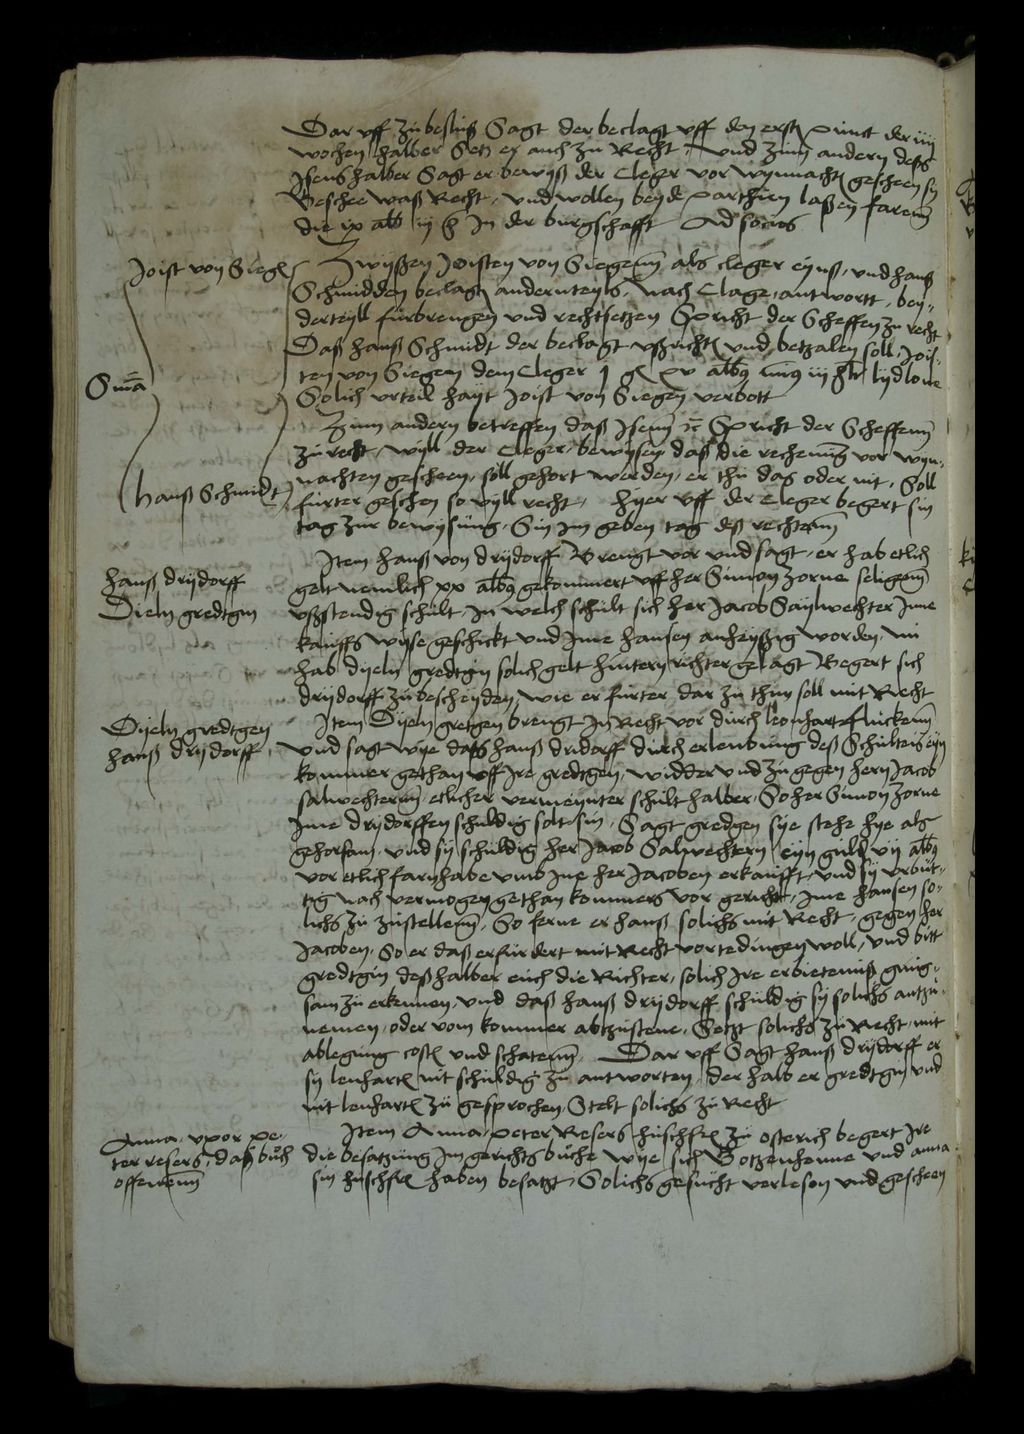 Dar uff zu besluß Sagt der beclagt uff den erst punct der iiij
wochen halber Setz er auch zu Recht, Und zum andern deß
Jsens halber Sagt er bewyß der Cleger vor wynnacht gescheen sy
Beschee waß Recht, und wollen beyde parthien laßen farenn
die ix alb iij h Jn der burgschafft Ad socios
Joist von Siegē
Zwyßen Joisten von Siegenn als cleger eynß, und hanß
Schmidden beclagtē anderntheyls, Nach Clage, antwortt, bey-
derteyll furbrengen und rechtsetzen Spricht der Scheffen zu recht
Daß hanß Schmidt der beclagt ußrichtē und betzalen soll, Jois-
ten von Siegen dem Cleger j gl xv albus iij hlr lydlone
Solich urteil hayt Joist von Siegen verbott
Sma
Zum andern betreffen daß Jsenn Spricht der Scheffenn
zu recht, wyll der Cleger, bewysen, daß die rechenung vor wyn-
nachten gescheen, soll gehort werden, er thu das oder nit, Soll
furter geschen so vyll recht, Hyer uff der Cleger begert sin
hanß Schmidt
tag zur bewysung, Sin jm geben tag deß rechtenn
Hanß drijdorff
Dieln gredtgin
Jtem hanß von drijdorff Brengt vor und sagt, er hab etlich
gelt nemlich xx albus gekommert uff her Simon Zorne seligenn
ußstendig schult, Jn welch schult sich her Jacob Saylwechter Jme
kauffs wyse geschickt und Jme hansen anheyßig worden, nu
hab dyeln gredtgin solich gelt hintern richter gelagt Begert sich
drijdorff zu bescheyden, wie er furter dar zu thun soll mit Recht
Dijeln gredtgen
hanß drijdorff
Jtem Dijeln gretgen brengt Jn Recht vor durch leonhart Fluckenn
und sagt wye daß hanß dridorff durch erleubung deß Schulteis eyn
kommer gethan uff Jre gredtgen, widder und zu gegen hern Jacob
salwechternn etlicher vermeynter schult halber, So her Simon Zorne
Jme drijdorffen schuldig solt sin, Sagt gredgen sye stehe hye als
gehorsam, und sy schuldig her Jacob Salwechtern eyn guld vij albus
vor etlich farnhabe umb Jne her Jacoben erkaufft, und sy urbut-
tig nach vermogen gethan kommers vor gericht, Jme hansen so-
lichs zu zustellenn, So ferne er hanß solichs mit Recht, gegen her
Jacoben, So er daß erfurdert mit Recht vortedingen woll, und bitt
gredtgin deßhalber euch die Richter, solich Jre erbieteniß gnug-
sam zu erkennen, und daß hanß drijdorff schuldig sy solichs antzu-
nemen, oder vom kommer abtzustene, Setzt solichs zu Recht, mit
ablegung costē und schatenn, Dar uff Sagt hanß drijdorff er
sy lenhartē nit schuldig zu antworten, der halb er gredtgin und
nit lenhartē zu gesprochen, Stelt solichs zu Recht
Anna, uxor pe-
ter resers, daß buch
offenenn
Jtem Anna, peter Resers hußfrē zu osterich begert Jre
die besatzung Jm gerichts buche wye sich Gotzenhenne und anna
sin hußfrē haben besatzt, Solichs gesucht verlesen und gescheen